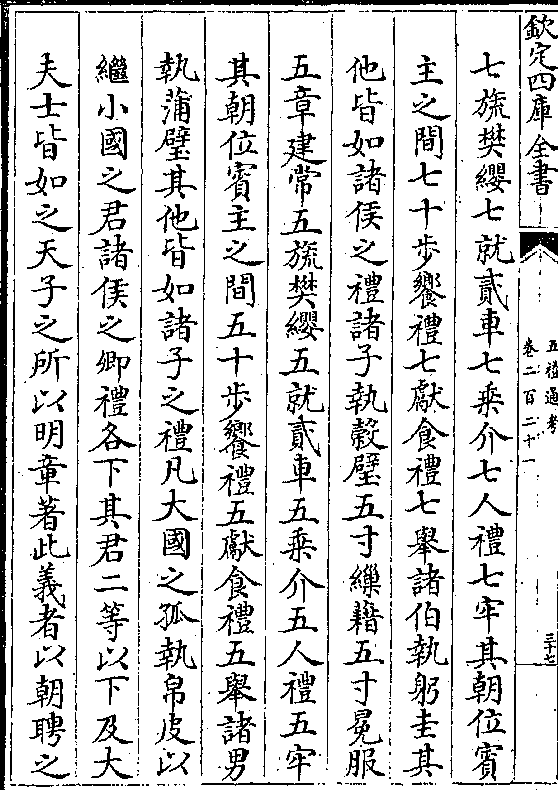 欽定四庫全書
五禮通考
卷二百二十一
三十七
七旒樊纓七就貳車七乘介七人禮七牢其朝位賓
主之間七十步饗禮七獻食禮七舉諸伯執躬圭其
他皆如諸侯之禮諸子執榖璧五寸繅藉五寸冕服
五章建常五旒樊纓五就貳車五乘介五人禮五牢
其朝位賓主之間五十步饗禮五獻食禮五舉諸男
執蒲璧其他皆如諸子之禮凡大國之孤執帛皮以
繼小國之君諸侯之卿禮各下其君二等以下及大
夫士皆如之天子之所以明章著此義者以朝聘之